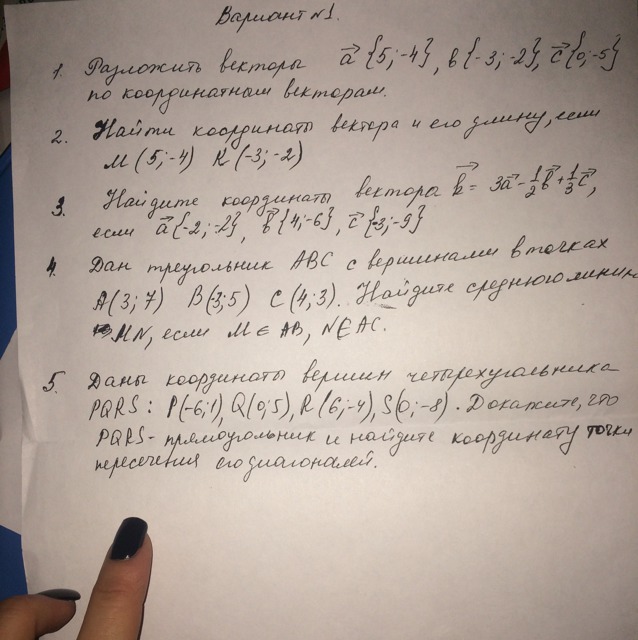 Вариант №1.
1. Разложить векторы a⃗ {5;-4}, в{-3;-2}, c⃗ {0;-5}
по координатным векторам.
2. Найти координаты вектора и его длину, если
М (5;-4) К (-3;-2)
3. Найдите координаты вектора k⃗ = 3a⃗ - 1/2 b⃗ + 1/3 c⃗,
если a⃗ {-2;-2}, b⃗ {4;-6}, c⃗ {-3;-9}
4. Дан треугольник АВС с вершинами в точках
А(3;7) В(3;5) С(4;3). Найдите среднюю линию
MN, если М∈АВ, N∈АС.
5. Даны координаты вершин четырехугольника
PQRS: P(-6;1), Q(0;5), R(6;-4), S(0;-8). Докажите, что
PQRS - прямоугольник и найдите координату точки
пересечения его диагоналей.